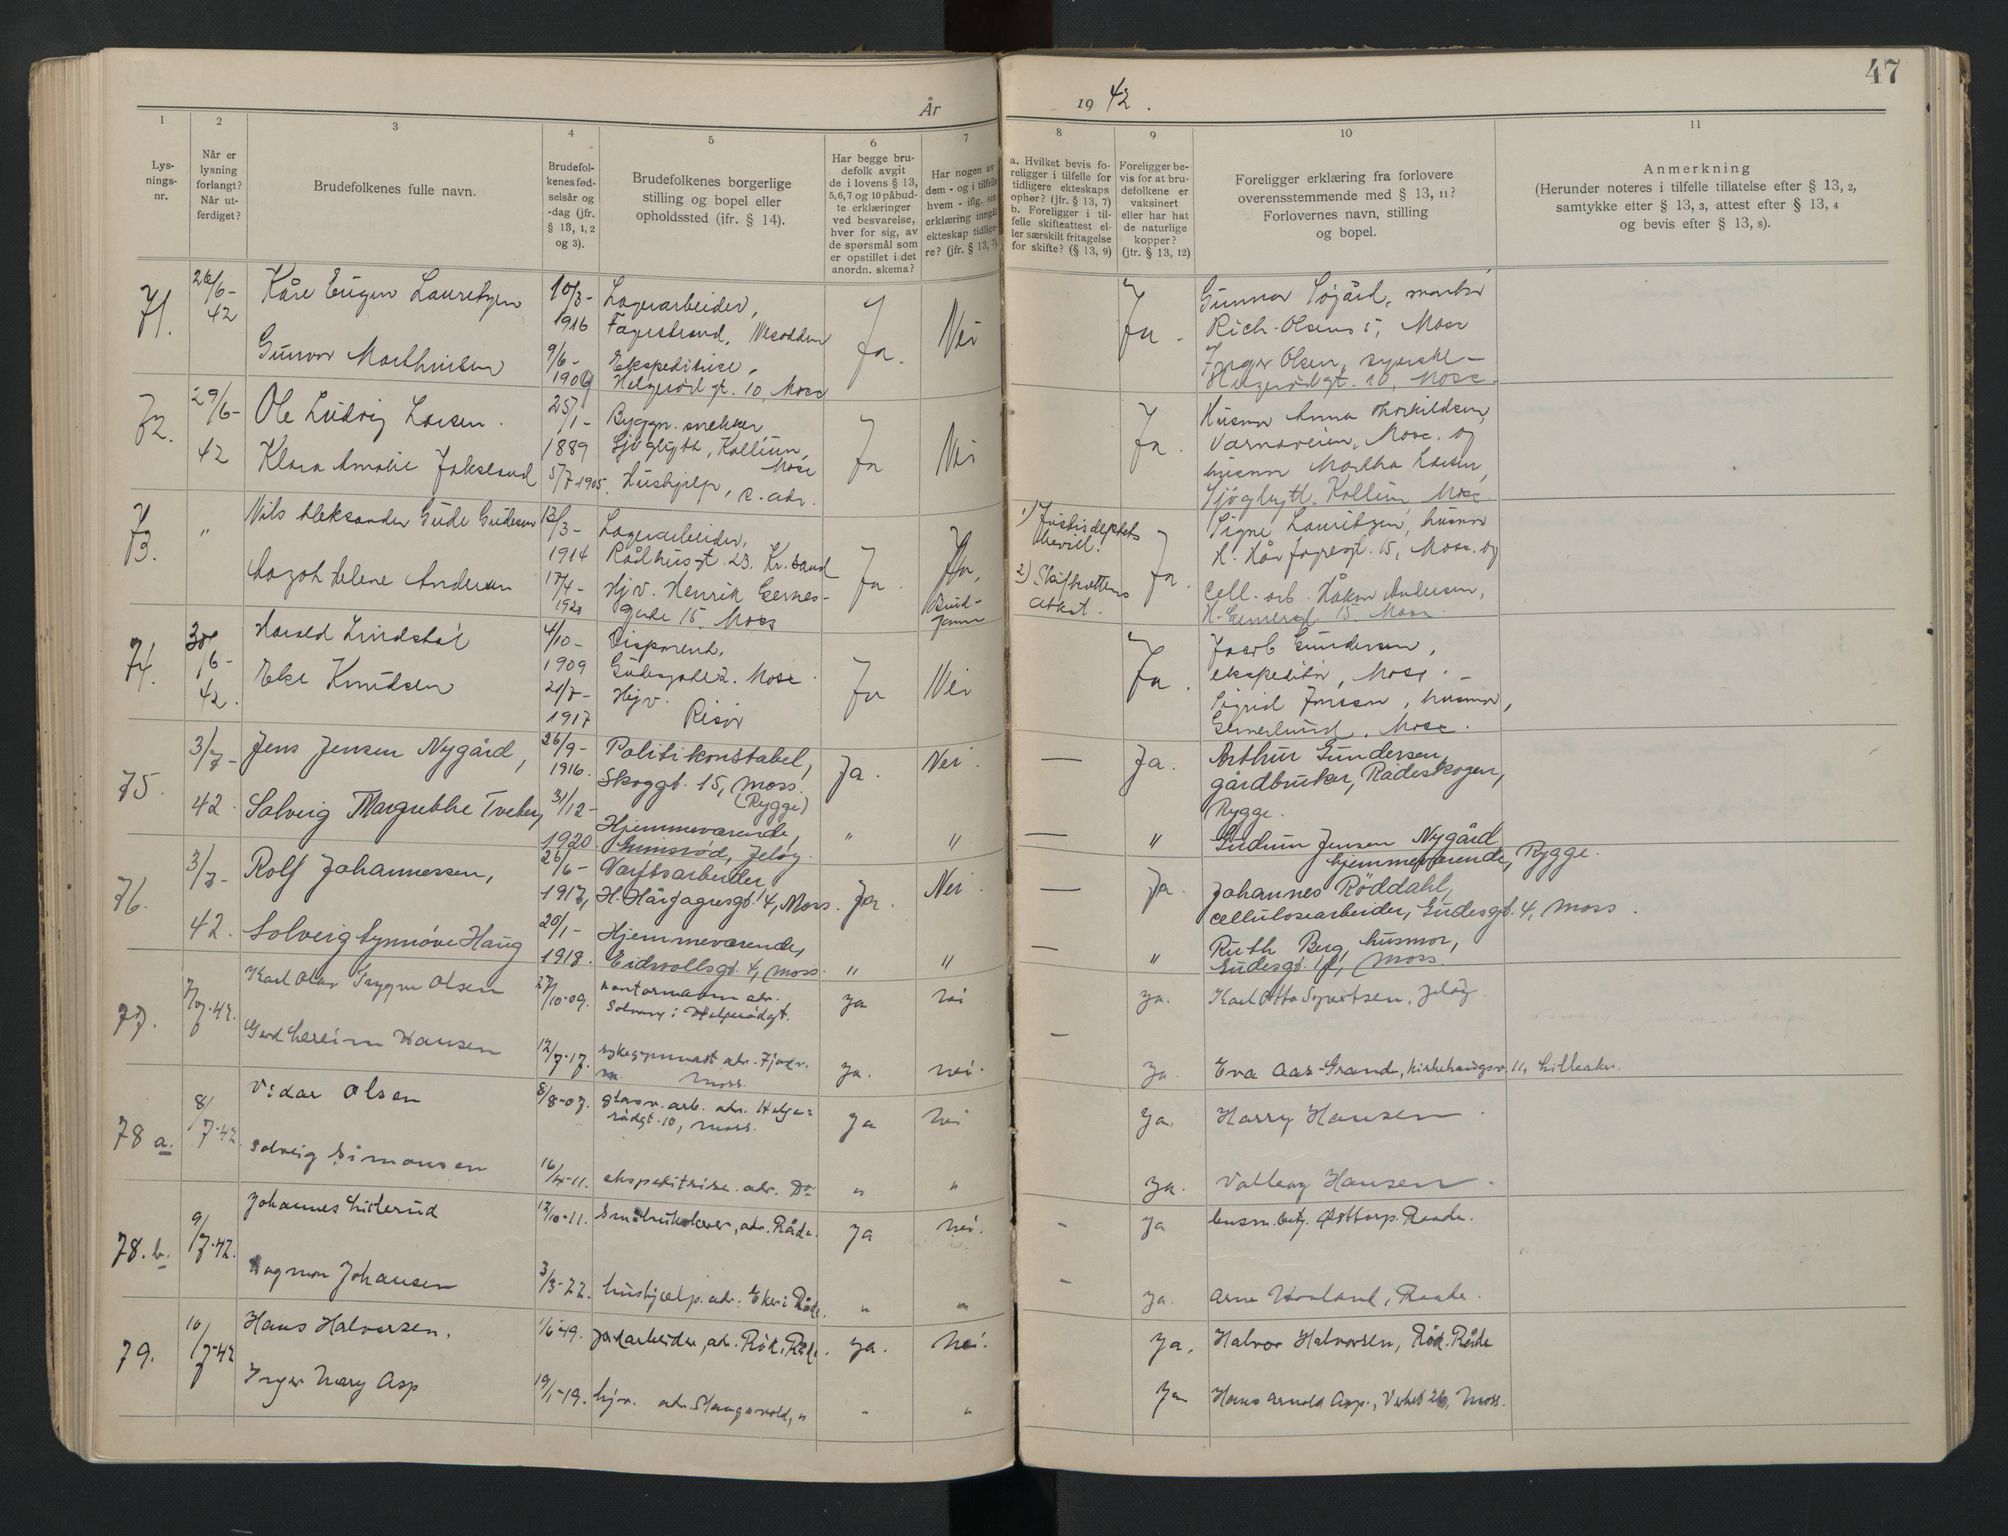 47
År 1942.
1 2 3 4 5 6 7 8 9 10 11
Lys-
nings-
nr.
Når er
lysning
forlangt?
Når ut-
ferdiget?
Brudefolkenes fulle navn.
Brudefol-
kenes fød-
selsår og
-dag (jfr.
§ 13, 1, 2
og 3).
Brudefolkenes borgerlige
stilling og bopel eller
opholdssted (ifr. § 14).
Har begge bru-
defolk avgit
de i lovens § 13,
5,6,7 og 10 påbud-
te erklæringer
ved besvarelse,
hver for sig, av
de spørsmål som
er opstillet i det
anordn. skema?
Har nogen av
dem - og i tilfelle
hvem - iflg. sin
erklæring inngått
ekteskap tidlige-
re? (jfr. § 13, 7).
a. Hvilket bevis fo-
religger i tilfelle for
tidligere ekteskaps
ophør? (jfr. § 13, 7)
b. Foreligger i til-
felle skifteattest el-
ler særskilt fritagelse
for skifte? (§ 13, 9)
Foreligger be-
vis for at bru-
defolkene er
vaksinert
eller har hat
de naturlige
kopper?
(jfr. § 13, 12)
Foreligger erklæring fra forlovere
overensstemmende med § 13, 11?
Forlovernes navn, stilling
og bopel.
Anmerkning
(Herunder noteres i tilfelle tillatelse efter § 13, 2,
samtykke efter § 13, 3, attest efter § 13, 4
og bevis efter § 13, 8).
71.
26/6-
42
Kåre Eugen Lauritzen
10/3-
1916
Lagerarbeider,
Fagerstrand, Nesodden
Ja.
Nei
Ja.
Gunnar
Rich. Olsens Moss
Gunvor Marthinsen
9/6-
1909
Ekspeditrise,
Helgerødgt. 10, Moss
Inger Olsen, syerske
Helgerødgt. 10, Moss.
72.
29/6-
42
Ole Ludvig Larsen.
25/1-
1889
Byggn. snekker
Sjøglytt, Kollium,
Moss
Ja
Nei
Ja.
Husmor Anna Thorkildsen,
Varnaveien, Moss. og
husmor Martha Larsen,
Sjøglytt, Kollium, Moss
Klara Amalie Jakslund
5/7 1905.
Hushjelp, s. adr.
73.
"
Nils Aleksander Gude Gudesen
12/3-
1914
Lagerarbeider,
Rådhusgt. 23. Kr. sand
Ja.
Ja,
Brud-
gommen
1) Justisdeptets
bevill.
2) Skifterettens
attest.
Ja.
Signe Lauritzen, husmor
H. Hårfagresgt. 15, Moss. og
Cell. arb. Håkon Andersen,
H. Gernersgt. 15. Moss.
Helene Andersen
17/4-
Hjv. Henrik Gernes-
gate 15. Moss
74.
30/6-
42.
Harald Lindstøl
4/10-
1909
Disponent,
Gudesgate 2. Moss.
Ja
Nei
Ja.
Jacob Gundersen,
ekspeditør, Moss.
Sigrid Jonsson, husmor,
Gernerlund, Moss.
Else Knudsen
21/7-
1917
Hjv.
Risør
75.
3/7-
42.
Jens Jensen Nygård,
26/9-
1916.
Politikonstabel,
Skoggt. 15, Moss.
(Rygge)
Ja.
Nei.
—
Ja.
Arthur Gundersen,
gårdbruker, Rådeskogen,
Rygge.
Solveig Margrethe Tveber
31/12-
1920.
Hjemmeværende,
Grimsrød, Jeløy.
"
"
—
"
Gudrun Jensen Nygård
hjemmeværende, Rygge.
76.
3/7-
42.
Rolf Johannessen,
26/6-
1917,
Værftsarbeider,
H. Hårfagresgt. 4, Moss.
Ja.
Nei.
—
Ja.
Johannes Røddahl,
cellulosearbeider, Gudesgt. 4, Moss.
Solveig Synnøve Haug
20/1-
1918.
Hjemmeværende,
Eidsvollsgt. 4, Moss.
"
"
—
"
Ruth Berg, husmor,
Gudesgt. 1, Moss.
77.
7/7.42.
Karl Olav Trygve Olsen
27/10-09.
Kontormann adr.
Solvang i Helgerødgt.
Ja
Nei
Ja.
Karl Otto Syvertsen, Jeløy.
Gerd Hansen
12/7-17.
sykegymnast adr.
Moss.
Ja.
Nei.
—
Ja.
Eva Aas-Grande, Kirkehaugsv. 11, Lilleaker.
78 a.
8/7.42
Vidar Olsen
8/8-07.
glassv. arb. adr. Helge-
rødgt. 10, Moss.
Ja
Nei
Ja.
Harry Hansen
Solveig Simonsen
16/4-11.
ekspeditrise. adr. Do
"
"
Ja.
Valborg Hansen
78. b.
9/7.42.
Johannes Listerud
12/10-11.
Småbruker, adr. Råde.
Ja
Nei.
-
Ja
Raade.
Dagmar Johansen
3/3-22.
hushjelp. adr: Eker i Råde.
"
"
-
Ja.
Arne Hovland, Raade.
79.
10/7-42
Hans Halvorsen.
1/6-19.
Jordarbeider, adr. Rød i Råde.
Ja.
Nei.
Ja.
Halvor Halvorsen, Rød. Råde
Inger Mary Asp
19/1-19.
hjv. adr. Stangsvold, "
"
"
Ja
Hans Arnold Asp, Verket 26, Moss.